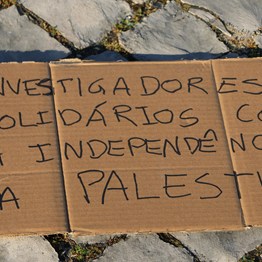 NVESTIGADORES
OLIDÁRIOS CO
A INDEPENDÊNC
A PALESTI